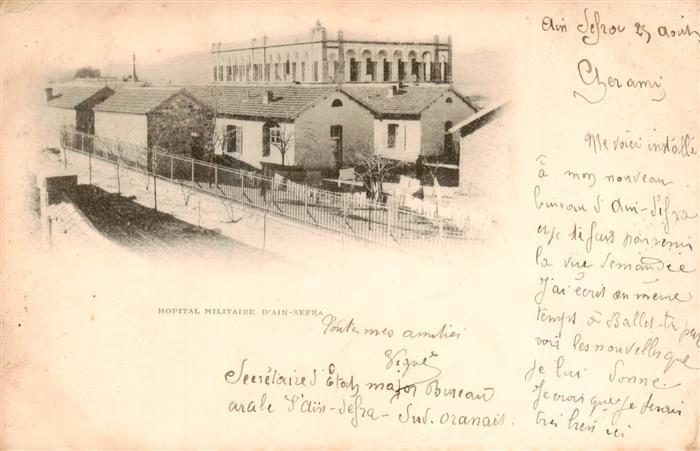 HOPITAL MILITAIRE D'AIN-SEFRA
Ain Sefra 23 août
Cher ami
Me voici installé
à mon nouveau
bureau d'Ain-Sefra
et je te fais parvenir
la vue demandée
J'ai écrit en même
temps à Ballet
vois les nouvelles que
je lui donne
Je crois que je serai
très bien ici
Toutes mes amitiés
Vigné
Secrétaire d'Etat major Bureau
arabe d'Aïn-Sefra - Sud. oranais.